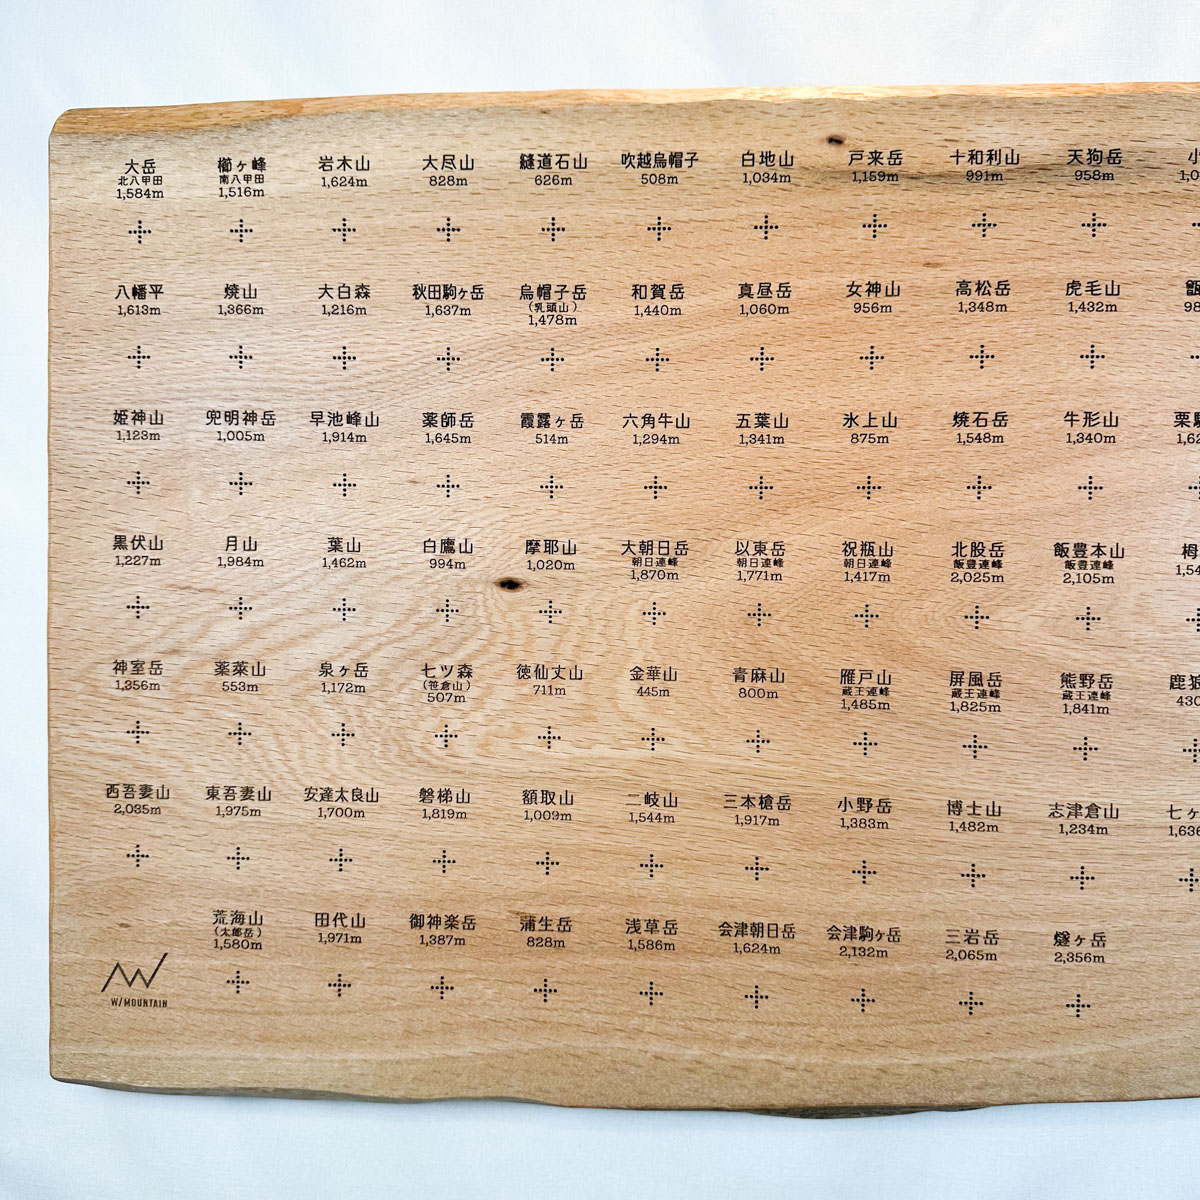 大岳 櫛ヶ峰 岩木山 大尽山 縫道石山 吹越烏帽子 白地山 戸来岳 十和利山 天狗岳 小
北八甲田 南八甲田
1,584m 1,516m 1,624m 828m 626m 508m 1,034m 1,159m 991m 958m 1,0
八幡平 焼山 大白森 秋田駒ヶ岳 烏帽子岳 和賀岳 真昼岳 女神山 高松岳 虎毛山
(乳頭山)
1,613m 1,366m 1,216m 1,637m 1,478m 1,440m 1,060m 956m 1,348m 1,432m 98
姫神山 兜明神岳 早池峰山 薬師岳 霞露ヶ岳 六角牛山 五葉山 氷上山 焼石岳 牛形山 栗駒
1,123m 1,005m 1,914m 1,645m 514m 1,294m 1,341m 875m 1,548m 1,340m 1,62
黒伏山 月山 葉山 白鷹山 摩耶山 大朝日岳 以東岳 祝瓶山 北股岳 飯豊本山 栂
朝日連峰 朝日連峰 朝日連峰 飯豊連峰 飯豊連峰
1,227m 1,984m 1,462m 994m 1,020m 1,870m 1,771m 1,417m 2,025m 2,105m 1,54
神室岳 薬莱山 泉ヶ岳 七ツ森 徳仙丈山 金華山 青麻山 雁戸山 屏風岳 熊野岳 鹿狼
(笹倉山) 蔵王連峰 蔵王連峰 蔵王連峰
1,356m 553m 1,172m 507m 711m 445m 800m 1,485m 1,825m 1,841m 430
西吾妻山 東吾妻山 安達太良山 磐梯山 額取山 二岐山 三本槍岳 小野岳 博士山 志津倉山 七ヶ
2,035m 1,975m 1,700m 1,819m 1,009m 1,544m 1,917m 1,383m 1,482m 1,234m 1,636
荒海山 田代山 御神楽岳 蒲生岳 浅草岳 会津朝日岳 会津駒ヶ岳 三岩岳 燧ヶ岳
(太郎岳)
1,580m 1,971m 1,387m 828m 1,586m 1,624m 2,132m 2,065m 2,356m
W/MOUNTAIN